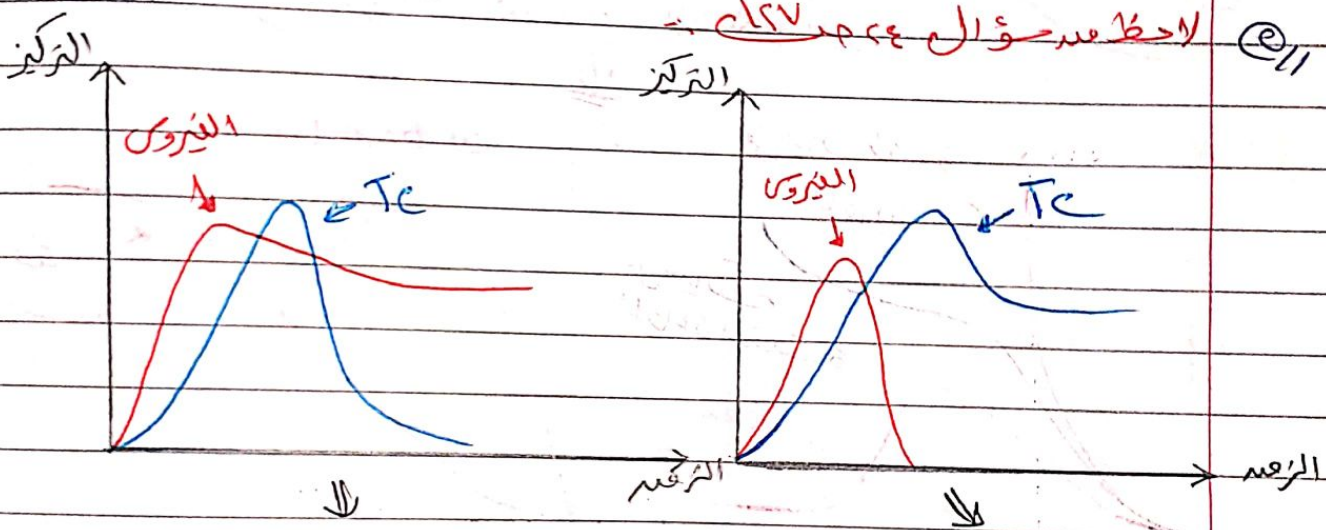 لاحظ من سؤال ٢٤ ص ١٢٧ :-
التركيز
الفيروس
Tc
الزمن
التركيز
الفيروس
Tc
الزمن